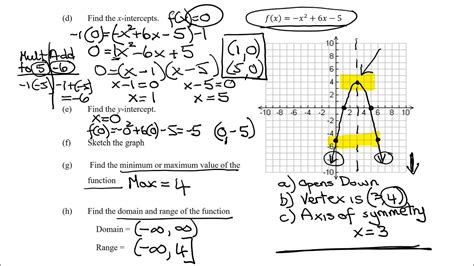 (d) Find the x-intercepts. f(x)=0
-1(0)=(-x²+6x-5)-1
0=x²-6x+5
Mult Add
to 5 -6
-1(-5) -1+(-5)
=-6
0=(x-1)(x-5)
x-1=0 x-5=0
x=1 x=5
(1,0)
(5,0)
(e) Find the y-intercept.
x=0
f(0)=-0²+6(0)-5=-5 (0,-5)
(f) Sketch the graph
(g) Find the minimum or maximum value of the
function Max=4
(h) Find the domain and range of the function
Domain = (-∞,∞)
Range = (-∞,4]
f(x) = -x² + 6x - 5
10
8
6
4
2
-10 -8 -6 -4 -2 2 4 6 8 10
-2
-4
-6
-8
-10
a) Opens Down
b) Vertex is (3,4)
c) Axis of symmetry
x=3